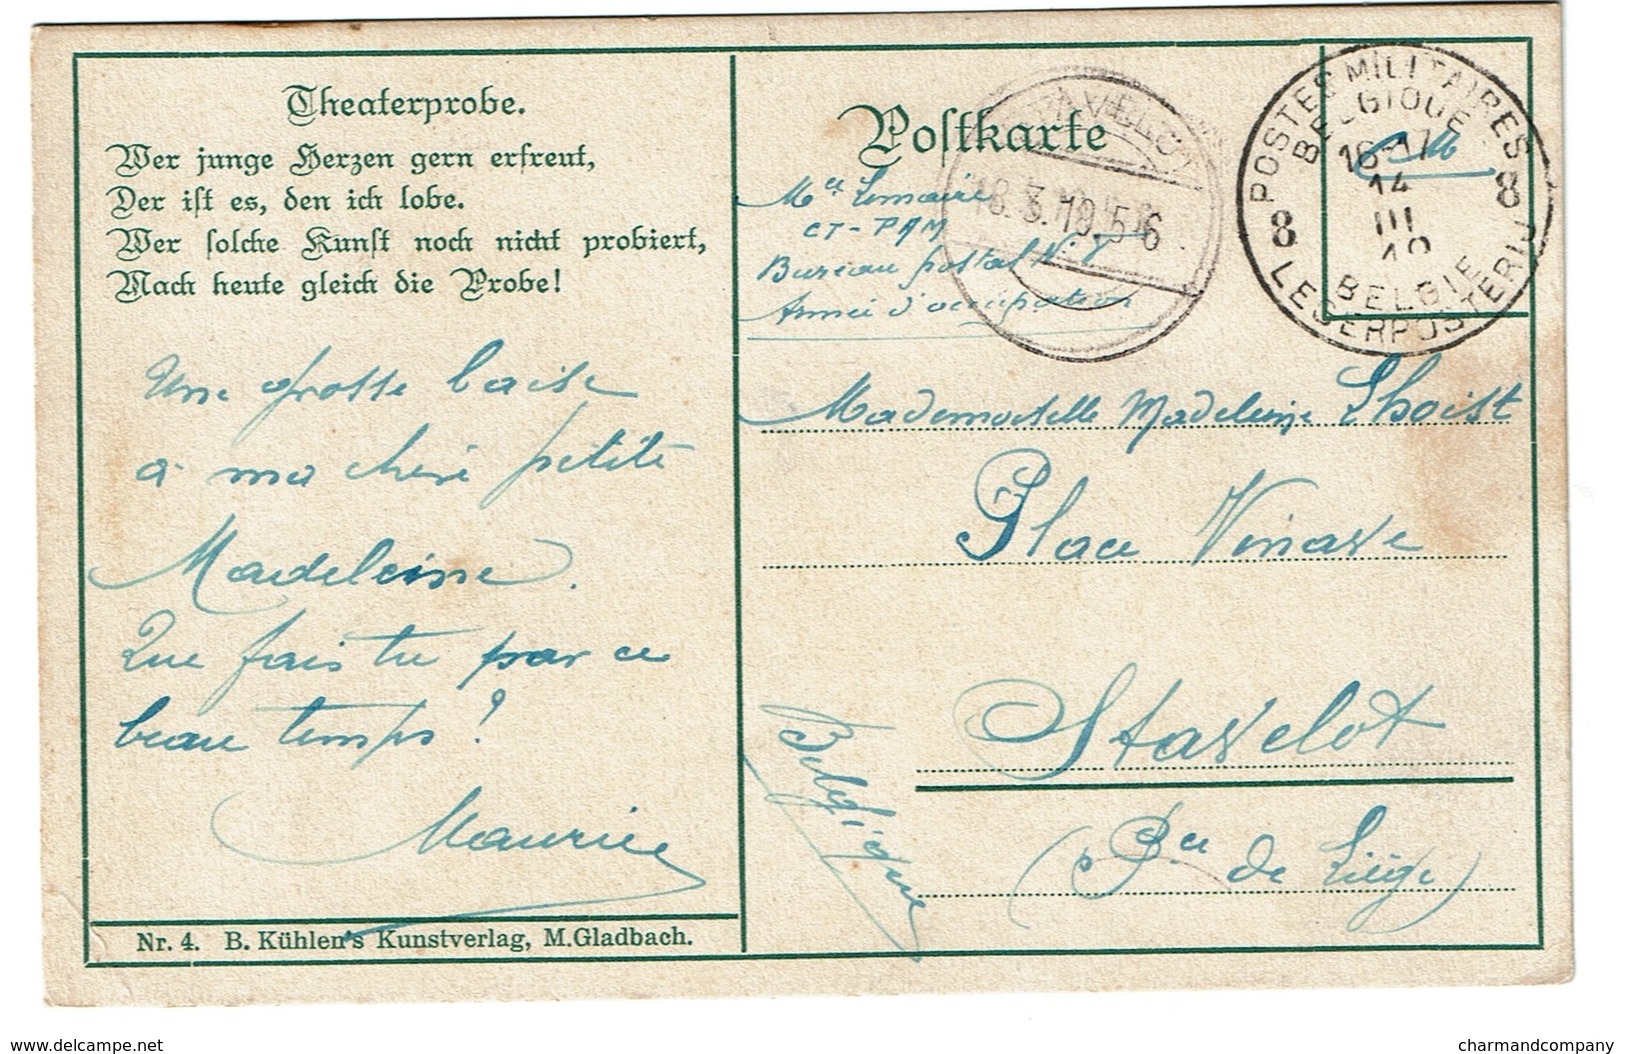 Theaterprobe.
Wer junge Herzen gern erfreut,
Der ist es, den ich lobe.
Wer solche Kunst noch nicht probiert,
Mach heute gleich die Probe!
Une grosse baise
à ma chère petite
Madeleine.
Que fais tu par ce
beau temps?
Maurice
Nr. 4. B. Kühlen's Kunstverlag, M.Gladbach.
Postkarte
STAVELOT
18.3.19. 5-6
POSTES MILITAIRES
BELGIQUE
16-17
14
III
19
8 8
BELGIE
LEGERPOSTERIJ
Lemaire
CT-PAM
Bureau postal N°
Armée d'occupation
Mademoiselle Madeleine Lhoist
Place Vinave
Stavelot
(Pce de Liège)
Belgique
delcampe.net
charmandcompany